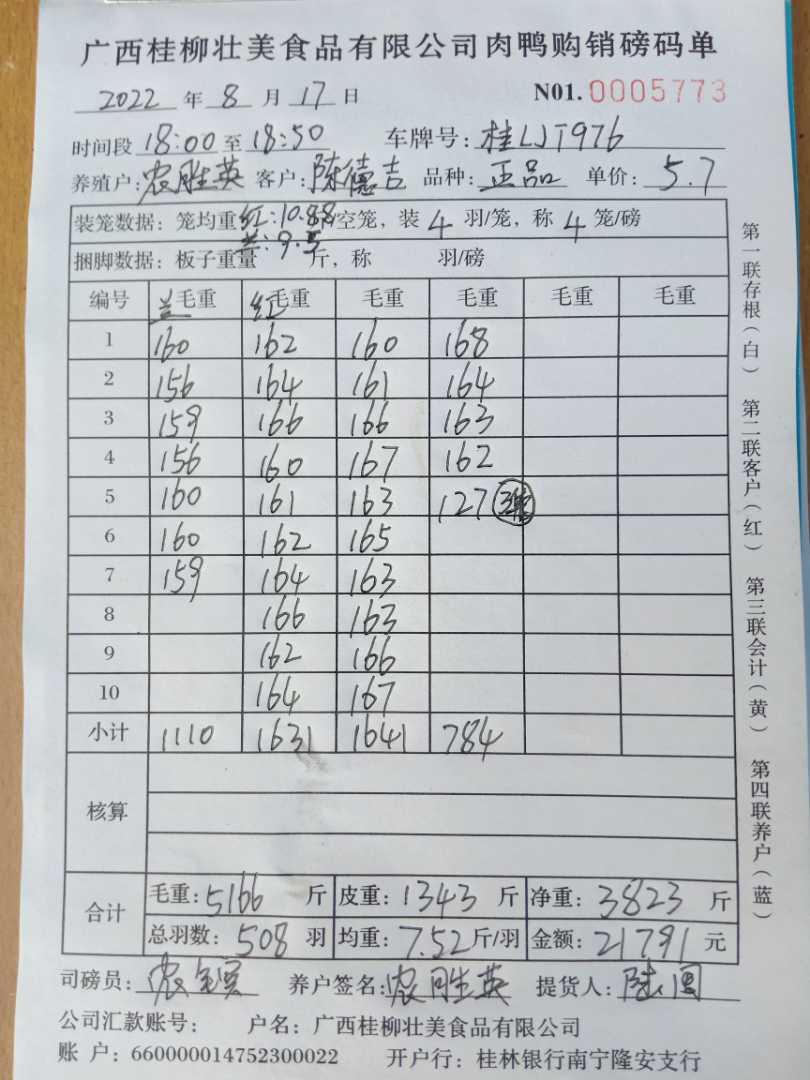 广西桂柳壮美食品有限公司肉鸭购销磅码单
2022 年 8 月 17 日 N01. 0005773
时间段 18:00 至 18:50 车牌号: 桂LJT976
养殖户: 农胜英 客户: 陈德吉 品种: 正品 单价: 5.7
装笼数据: 笼均重 红:10.88 /空笼, 装 4 羽/笼, 称 4 笼/磅
兰:9.5
捆脚数据: 板子重量 斤, 称 羽/磅
编号 兰毛重 红毛重 毛重 毛重 毛重 毛重
1 160 162 160 168
2 156 164 161 164
3 159 166 166 163
4 156 160 167 162
5 160 161 163 127
6 160 162 165
7 159 164 163
8 166 163
9 162 166
10 164 167
小计 1110 1631 1641 784
核算
合计
毛重: 5166 斤 皮重: 1343 斤 净重: 3823 斤
总羽数: 508 羽 均重: 7.52 斤/羽 金额: 21791 元
司磅员: 农 养户签名: 农胜英 提货人: 陆
公司汇款账号: 户名: 广西桂柳壮美食品有限公司
账 户: 660000014752300022 开户行: 桂林银行南宁隆安支行
第一联存根(白) 第二联客户(红) 第三联会计(黄) 第四联养户(蓝)